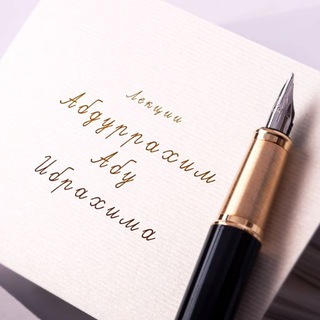 Лекции
Абдуррахим
Абу
Ибрахима